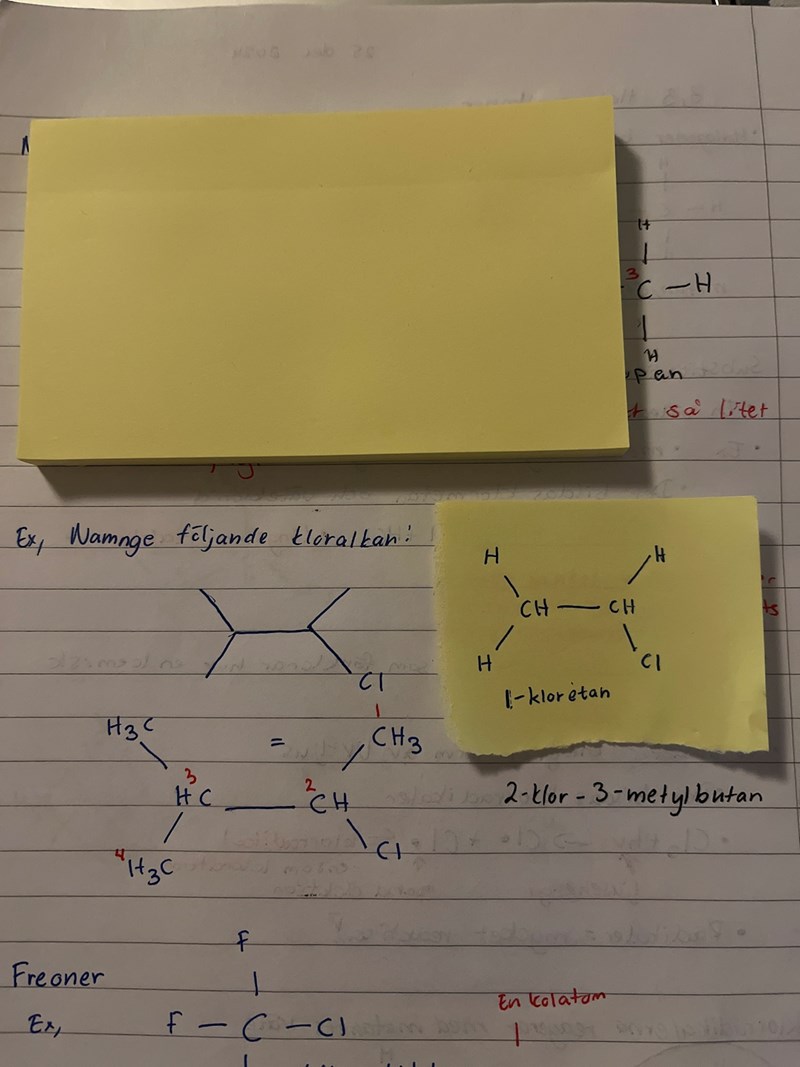 H
3
C — H
H
pan
så litet
Ex, Namnge följande kloralkan:
H H
CH — CH
H Cl
1-kloretan
Cl
1
H3C = CH3
3 2
HC — CH
4 H3C Cl
2-klor-3-metylbutan
F
Freoner
En kolatom
Ex, F — C — Cl